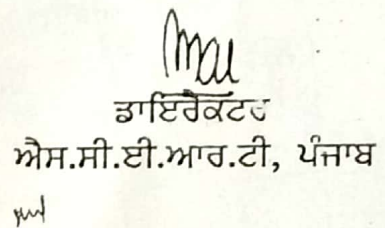 ਡਾਇਰੈਕਟਰ
ਐਸ.ਸੀ.ਈ.ਆਰ.ਟੀ, ਪੰਜਾਬ